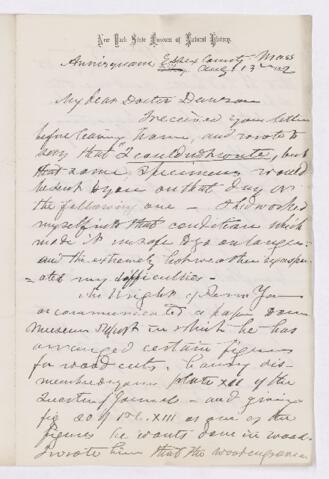 New York State Museum of Natural History,
Annisquam Essex County Mass
Aug 13
My dear Doctor Dawson
I received your letter
before leaving home, and wrote to
say that "I could not write, but
that some specimens would
be sent to you on that day or
the following one - I had worked
myself into that condition which
made it unsafe to go on longer
and the extremely hot weather
my difficulties -
Mr Wright of Penn Yan
communicated a paper
Museum Report in which he has
arranged certain figures
for wood cuts,
Plate XII of the
Quarterly Journal - and
fig 20 of Pl. XIII as one of the
figures he wants done in wood
I wrote him that the wood engraver